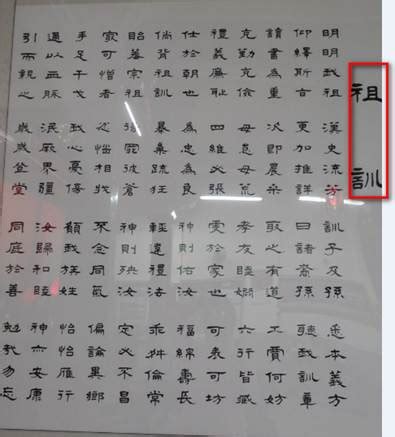 祖訓
明明我祖漢史流芳訓子及孫悉本義方
仰繹斯旨更加推詳曰諸裔孫聽我訓章
讀書為重次即農桑取之有道工賈何妨
克勤克儉毋怠毋荒孝友睦婣六行皆臧
禮義廉恥四維畢張處於家也可表可坊
仕於朝也為忠為良神則佑汝福綿壽長
倘背祖訓暴棄疏狂輕違禮法乖舛倫常
貽羞宗祖得罪彼蒼神則殃汝定必不昌
最可憎者分類相戕不念同氣偏論異鄉
手足干戈我心憂傷願我族姓怡怡雁行
通以血脈泯厥界疆汝歸和睦神亦安康
引而親之歲歲登堂同庭於善勉哉勿忘